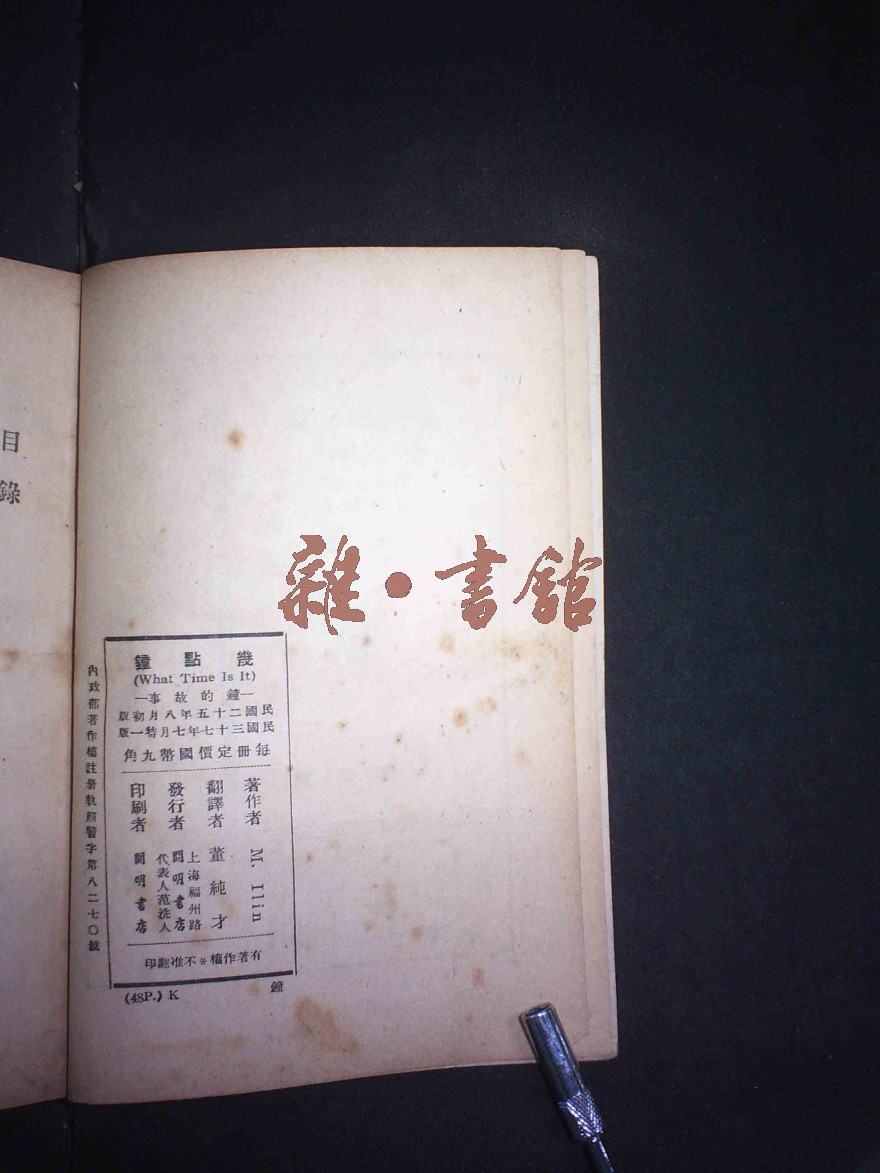 目錄
雜·書館
幾點鐘
(What Time Is It)
—鐘的故事—
民國二十五年八月初版
民國三十七年七月特一版
每册定價國幣九角
著作者 M. Ilin
翻譯者 董純才
發行者 上海福州路
開明書店
代表人范洗人
印刷者 開明書店
有著作權*不准翻印
內政部著作權註册執照警字第八二七〇號
(48P.) K
鐘